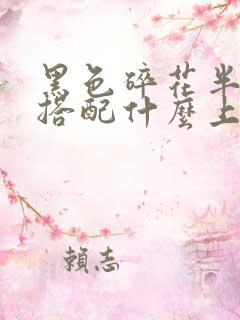 黑色碎花半
搭配什麼上
賴志